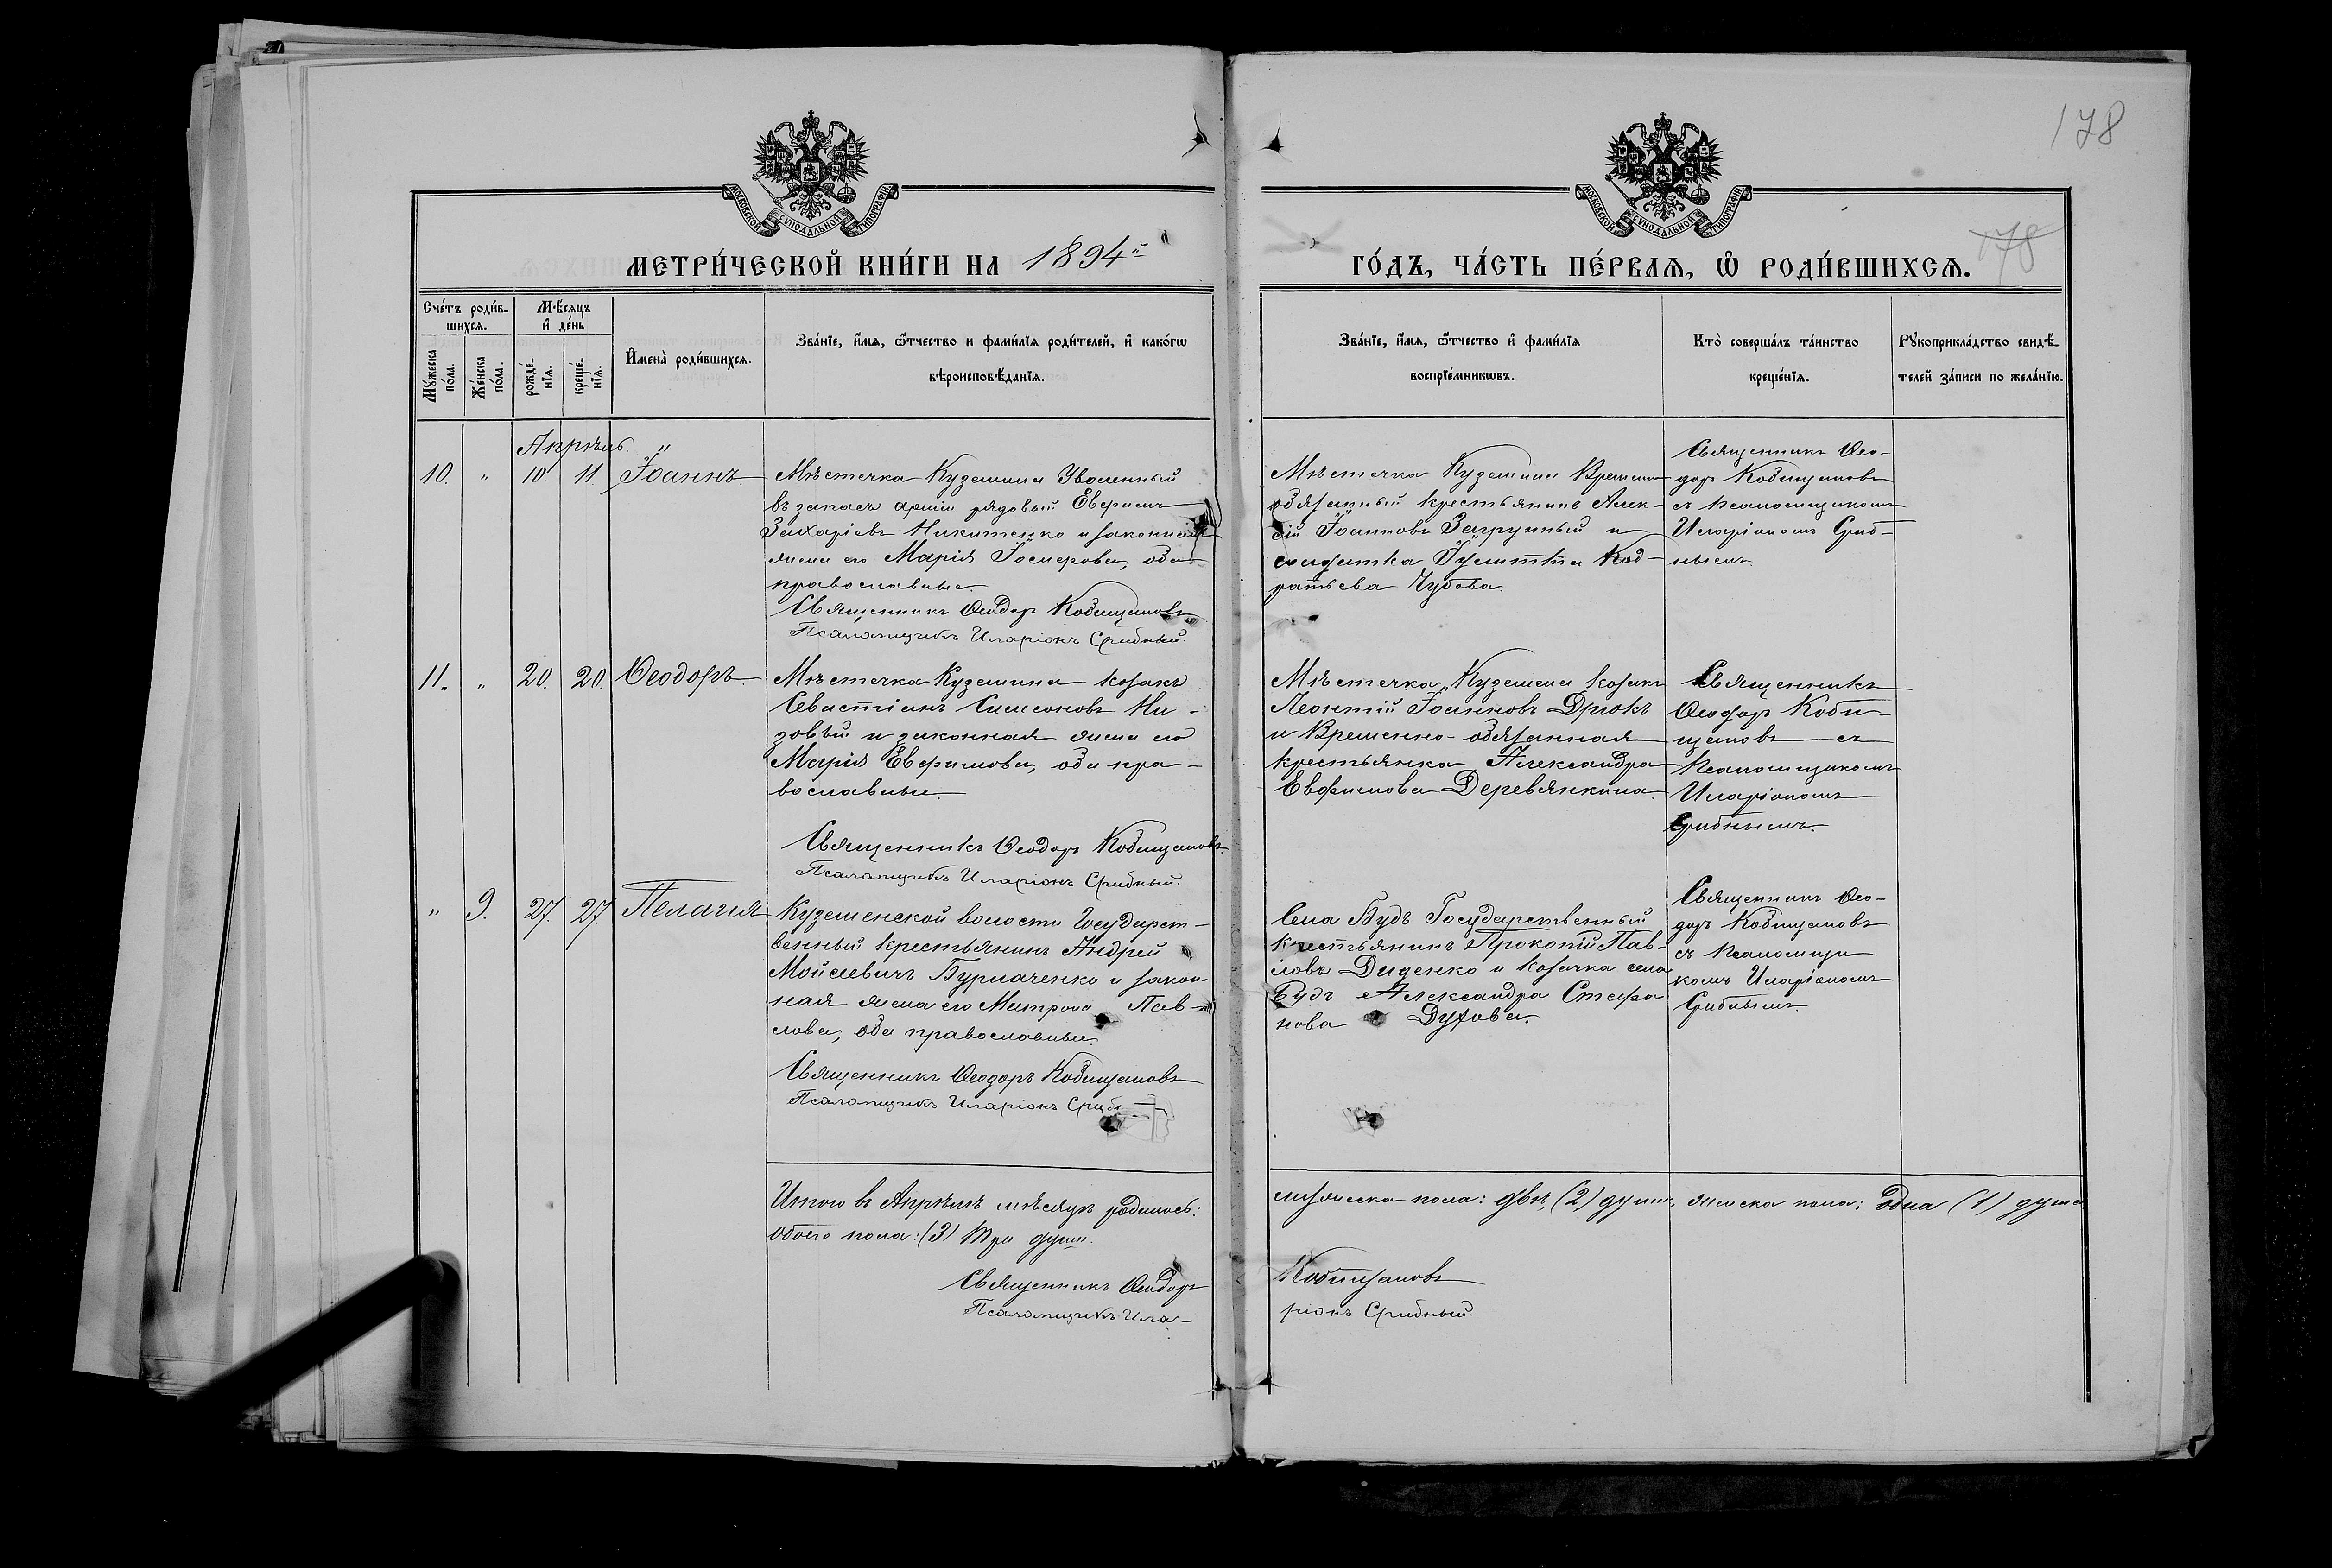 178
МОСКОВСКОЙ СѴНОДАЛЬНОЙ ТИПОГРАФІИ
МОСКОВСКОЙ СѴНОДАЛЬНОЙ ТИПОГРАФІИ
МЕТРИ́ЧЕСКОЙ КНИ́ГИ НА 1894й
ГО́ДЪ, ЧА́СТЬ ПЕ́РВАѦ, Ѽ РОДИ́ВШИХСѦ.
178
Сче́тъ роди́в-
шихсѧ.
Мѣ́сѧцъ
и҆ де́нь
Мꙋ́жеска
по́ла.
Же́нска
по́ла.
рожде́-
нїѧ.
креще́-
нїѧ.
И҆мена̀ роди́вшихсѧ.
Зва́нїе, и҆́мѧ, ѻ҆́тчество и фами́лїѧ роди́телей, и҆ како́гѡ
вѣроисповѣ́данїѧ.
Зва́нїе, и҆́мѧ, ѻ҆́тчество и҆ фами́лїѧ
воспрїе́мникѡвъ.
Кто̀ соверша́лъ та́инство
креще́нїѧ.
Рꙋкоприкла́дство свидѣ́-
телей за́писи по жела́нїю.
Апрѣль.
10. " 10. 11. Іоаннъ.
Мѣстечка Куземина Уволенный
въ запасъ арміи рядовый Евфимъ
Захаріевъ Никитенко и законная
жена его Марія Іосифова, оба
православные.
Священникъ Ѳеодоръ Кобищановъ
Псаломщикъ Иларіонъ Срибный.
Мѣстечка Куземина Временно
обязанный крестьянинъ Алек-
сій Іоанновъ Загрунный и
солдатка Код-
ратьева Чубова.
Священникъ Ѳео-
доръ Кобищановъ
съ псаломщикомъ
Иларіономъ Сриб-
нымъ.
11. " 20. 20. Ѳеодоръ.
Мѣстечка Куземина козакъ
Севастіанъ Симеоновъ Ни-
зовый и законная жена его
Марія Евфимова, оба пра-
вославные.
Священникъ Ѳеодоръ Кобищановъ.
Псаломщикъ Иларіонъ Срибный.
Мѣстечка Куземина козакъ
Леонтій Іоанновъ Дрюкъ
и Временно-обязанная
крестьянка Александра
Евфимова Деревянкина.
Священникъ
Ѳеодоръ Коби-
щановъ съ
псаломщикомъ
Иларіономъ
Срибнымъ.
" 9. 27. 27. Пелагія
Куземенской волости Государст-
венный крестьянинъ Андрей
Мойсеевичъ Бурначенко и закон-
ная жена его Матрона Пав-
лова, оба православные.
Священникъ Ѳеодоръ Кобищановъ
Псаломщикъ Иларіонъ Сриб
Села Будъ Государственный
крестьянинъ Прокопій Пав-
ловъ Диденко и козачка села
Будъ Александра Стефа
нова Духова.
Священникъ Ѳео-
доръ Кобищановъ
съ псаломщи
комъ Иларіономъ
Срибнымъ.
Итого въ Апрѣлѣ мѣсяцѣ родилось:
обоего пола: (3) три души.
мужеска пола: двѣ (2) души, женска пола: одна (1) душа
Священникъ Ѳеодоръ
Кобищановъ
Псаломщикъ Ила-
ріонъ Срибный.